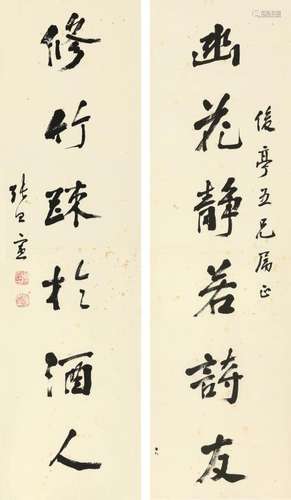 幽花静若詩友
俊亭五兄属正
修竹疎於酒人
張曰宣